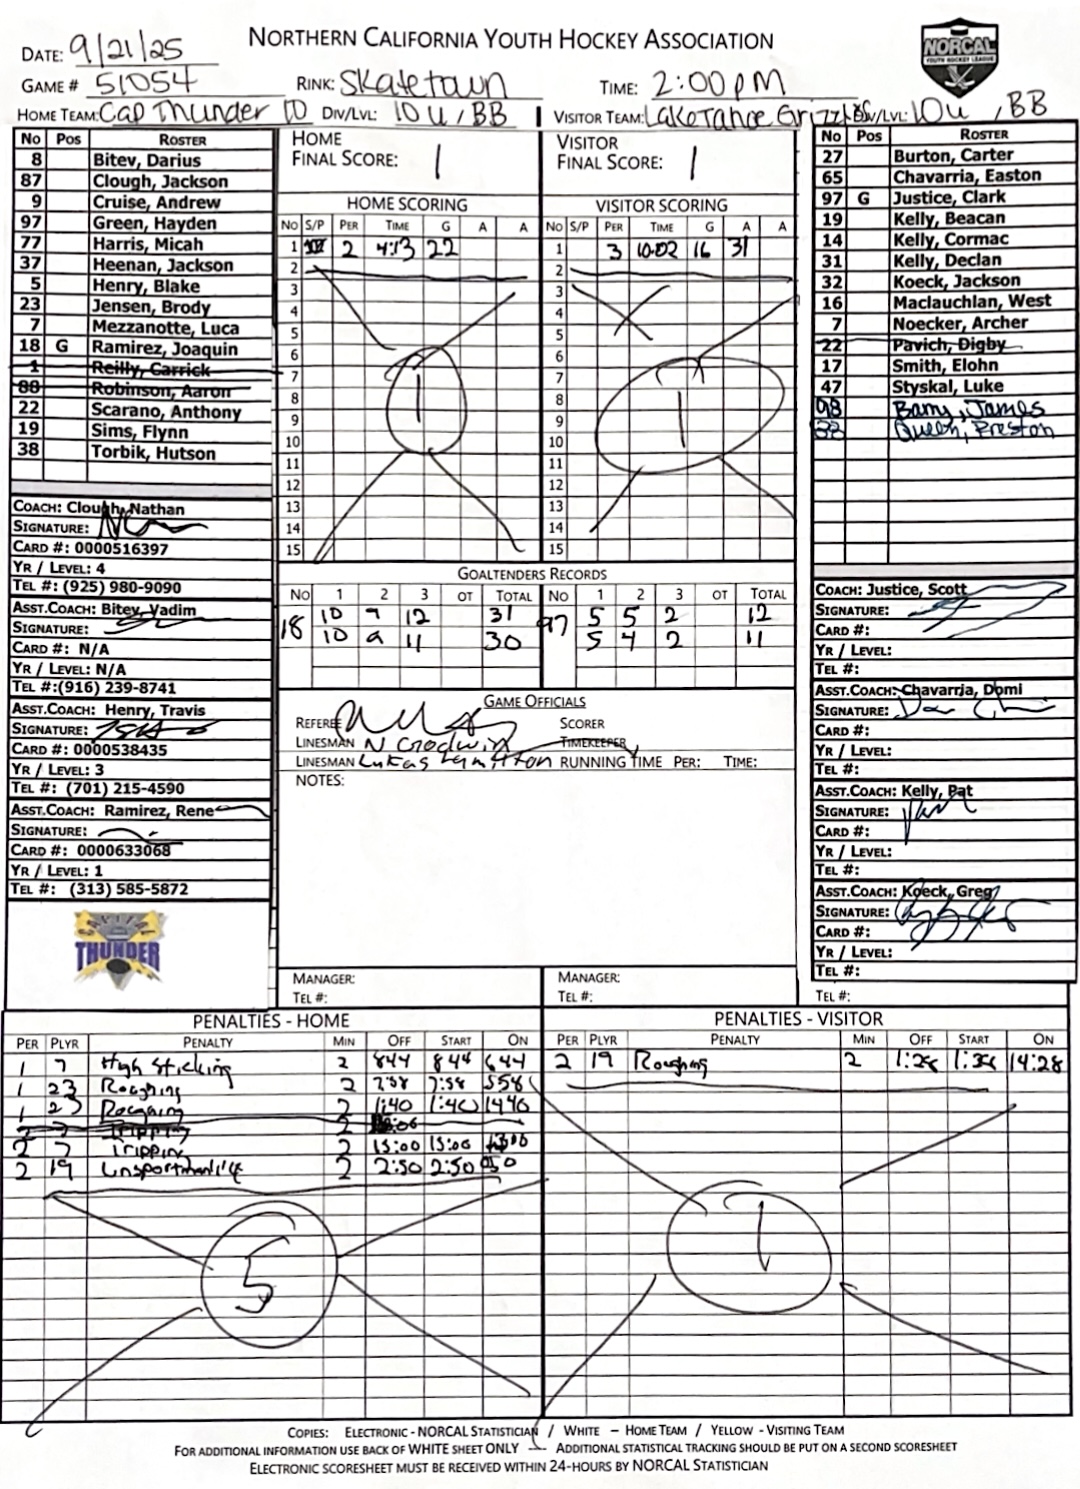 NORTHERN CALIFORNIA YOUTH HOCKEY ASSOCIATION
NORCAL
YOUTH HOCKEY LEAGUE
DATE: 9/21/25
GAME # 51054 RINK: Skatetown TIME: 2:00pm
HOME TEAM: Cap Thunder DIV/LVL: 10U, BB VISITOR TEAM: Lake Tahoe Grizzlies DIV/LVL: 10U, BB
No Pos ROSTER
8 Bitev, Darius
87 Clough, Jackson
9 Cruise, Andrew
97 Green, Hayden
77 Harris, Micah
37 Heenan, Jackson
5 Henry, Blake
23 Jensen, Brody
7 Mezzanotte, Luca
18 G Ramirez, Joaquin
1 Reilly, Carrick
88 Robinson, Aaron
22 Scarano, Anthony
19 Sims, Flynn
38 Torbik, Hutson
COACH: Clough, Nathan
SIGNATURE:
CARD #: 0000516397
YR / LEVEL: 4
TEL #: (925) 980-9090
ASST.COACH: Bitev, Vadim
SIGNATURE:
CARD #: N/A
YR / LEVEL: N/A
TEL #:(916) 239-8741
ASST.COACH: Henry, Travis
SIGNATURE:
CARD #: 0000538435
YR / LEVEL: 3
TEL #: (701) 215-4590
ASST.COACH: Ramirez, Rene
SIGNATURE:
CARD #: 0000633068
YR / LEVEL: 1
TEL #: (313) 585-5872
THUNDER
HOME FINAL SCORE: 1
VISITOR FINAL SCORE: 1
HOME SCORING
NO S/P PER TIME G A A
1 2 4:13 22
2
3
4
5
6
7
8
9
10
11
12
13
14
15
1
VISITOR SCORING
NO S/P PER TIME G A A
1 3 10:02 16 31
2
3
4
5
6
7
8
9
10
11
12
13
14
15
1
GOALTENDERS RECORDS
NO 1 2 3 OT TOTAL NO 1 2 3 OT TOTAL
18 10 9 12 31 97 5 5 2 12
10 9 11 30 5 4 2 11
GAME OFFICIALS
REFEREE SCORER
LINESMAN N Goodwin TIMEKEEPER
LINESMAN Lukas Hamilton RUNNING TIME PER: TIME:
NOTES:
MANAGER:
TEL #:
MANAGER:
TEL #:
No Pos ROSTER
27 Burton, Carter
65 Chavarria, Easton
97 G Justice, Clark
19 Kelly, Beacan
14 Kelly, Cormac
31 Kelly, Declan
32 Koeck, Jackson
16 Maclauchlan, West
7 Noecker, Archer
22 Pavich, Digby
17 Smith, Elohn
47 Styskal, Luke
98 Barry, James
38 Queen, Preston
COACH: Justice, Scott
SIGNATURE:
CARD #:
YR / LEVEL:
TEL #:
ASST.COACH: Chavarria, Domi
SIGNATURE:
CARD #:
YR / LEVEL:
TEL #:
ASST.COACH: Kelly, Pat
SIGNATURE:
CARD #:
YR / LEVEL:
TEL #:
ASST.COACH: Koeck, Greg
SIGNATURE:
CARD #:
YR / LEVEL:
TEL #:
TEL #:
PENALTIES - HOME
PER PLYR PENALTY MIN OFF START ON
1 7 High Sticking 2 844 844 644
1 23 Roughing 2 7:58 7:58 558
1 23 Roughing 2 1:40 1:40 1440
2 7 Tripping 2
2 7 Tripping 2 15:00 15:00 1300
2 19 Unsportmanlike 2 2:50 2:50 050
5
PENALTIES - VISITOR
PER PLYR PENALTY MIN OFF START ON
2 19 Roughing 2 1:28 1:28 14:28
1
COPIES: ELECTRONIC - NORCAL STATISTICIAN / WHITE – HOME TEAM / YELLOW - VISITING TEAM
FOR ADDITIONAL INFORMATION USE BACK OF WHITE SHEET ONLY – ADDITIONAL STATISTICAL TRACKING SHOULD BE PUT ON A SECOND SCORESHEET
ELECTRONIC SCORESHEET MUST BE RECEIVED WITHIN 24-HOURS BY NORCAL STATISTICIAN